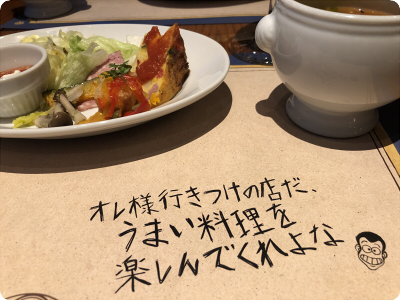 オレ様行きつけの店だ、
うまい料理を
楽しんでくれよな